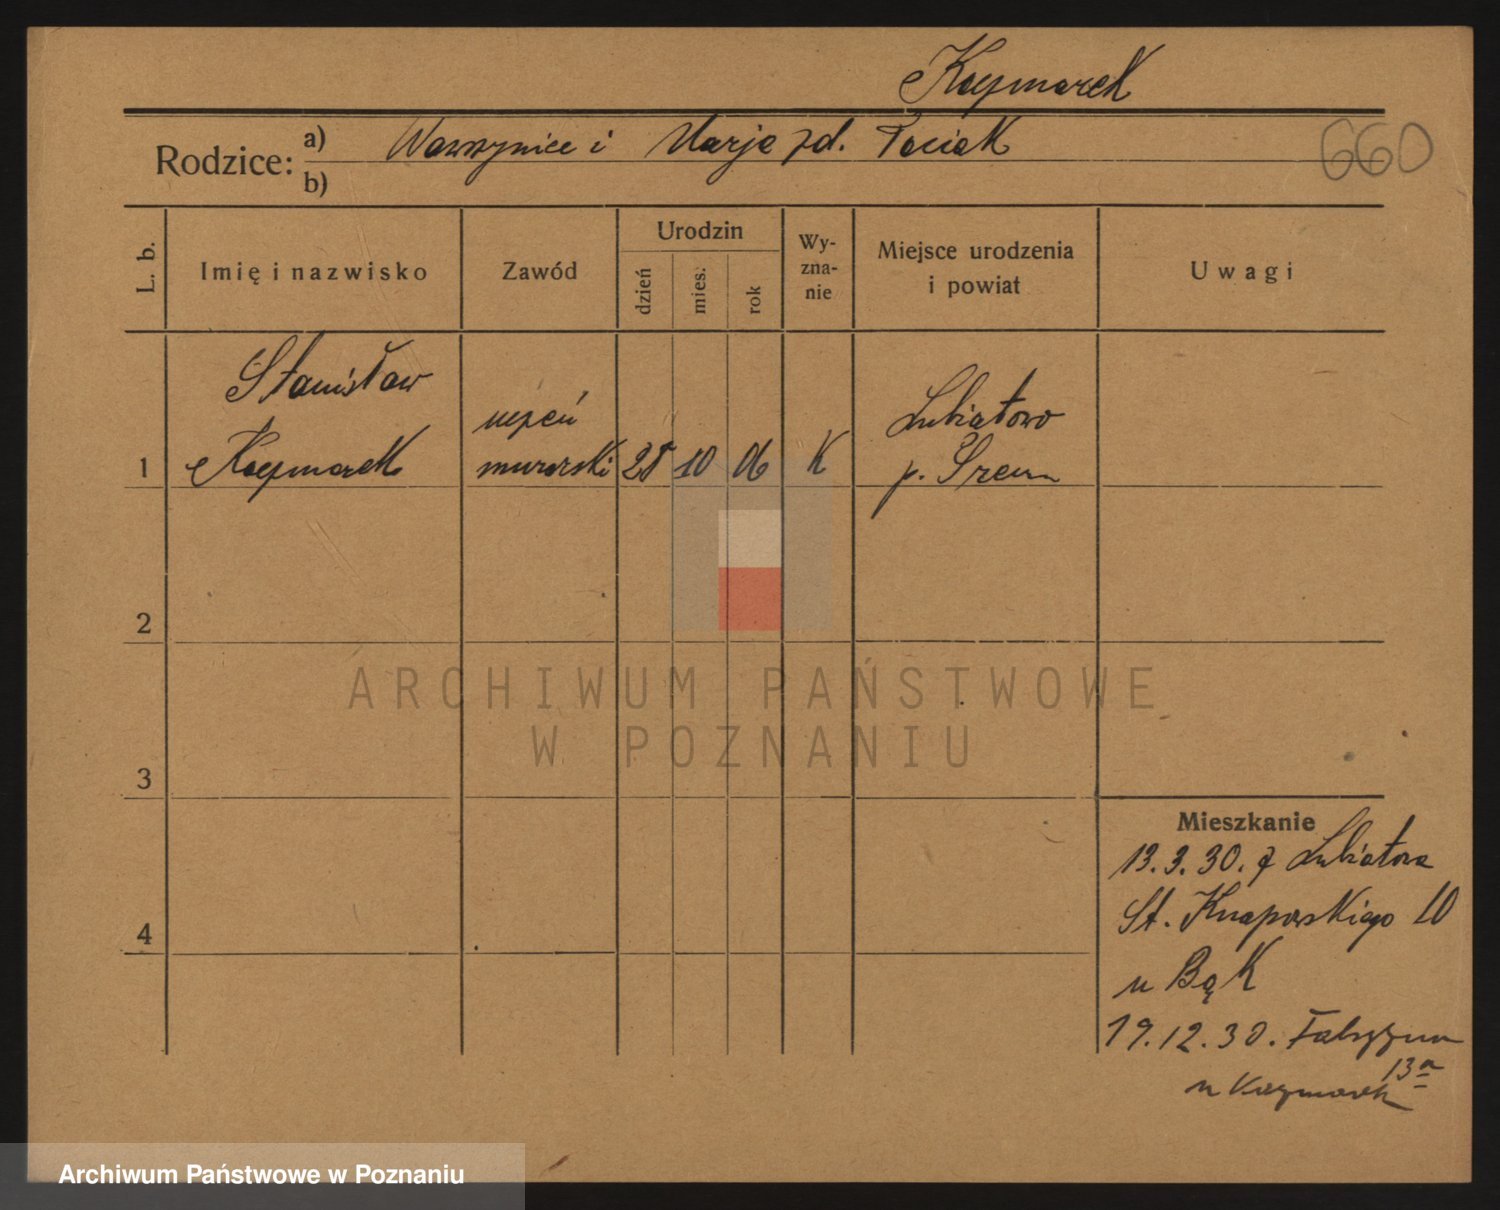 Kaczmarek
Rodzice: a) Wawrzyniec i Marja zd. Tociak
b)
660
L. b.
Imię i nazwisko
Zawód
Urodzin
dzień
mies.
rok
Wy-
zna-
nie
Miejsce urodzenia
i powiat
Uwagi
Stanisław
Kaczmarek
uczeń
murarski
28 10 06 K
Lubiatowo
p. Srem
1
2
3
4
ARCHIWUM PAŃSTWOWE
W POZNANIU
Mieszkanie
13.3.30. z Lubiatowa
St. Knapowskiego 10
u Bąk
19.12.30.
13a
u Kaczmarek
Archiwum Państwowe w Poznaniu